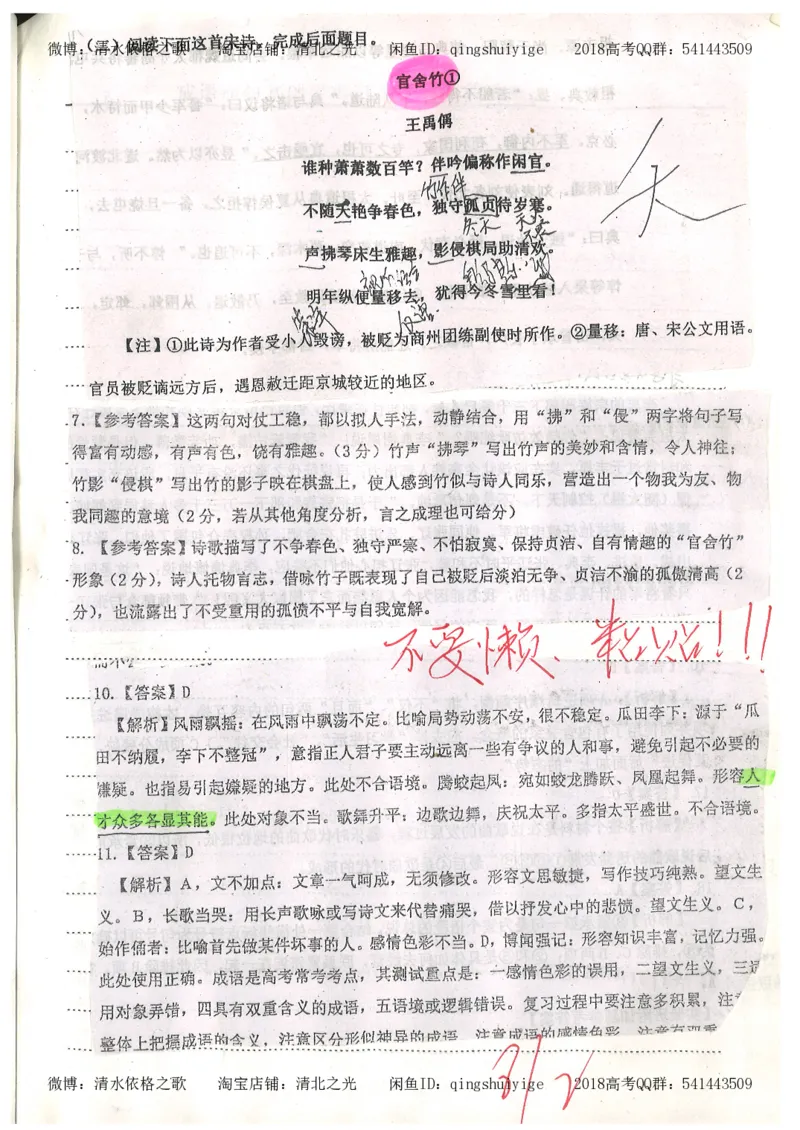 (三)阅读下面这首宋诗,完成后面题目。
微博:清水依格之歌 淘宝店铺:清北之光 闲鱼ID:qingshuiyige 2018高考QQ群:541443509
官舍竹①
王禹偁
谁种萧萧数百竿?伴吟偏称作闲官。
竹作伴
不随夭艳争春色,独守孤贞待岁寒。
夭
冬天
声拂琴床生雅趣,影侵棋局助清欢。
明年纵便量移去,犹得今冬雪里看!
【注】①此诗为作者受小人毁谤,被贬为商州团练副使时所作。②量移:唐、宋公文用语。
官员被贬谪远方后,遇恩赦迁距京城较近的地区。
7.【参考答案】这两句对仗工稳,部以拟人手法,动静结合,用“拂”和“侵”两字将句子写
得富有动感,有声有色,饶有雅趣。(3分)竹声“拂琴”写出竹声的美妙和含情,令人神往;
竹影“侵棋”写出竹的影子映在棋盘上,使人感到竹似与诗人同乐,营造出一个物我为友、物
我同趣的意境(2分,若从其他角度分析,言之成理也可给分)
8.【参考答案】诗歌描写了不争春色、独守严寒、不怕寂寞、保持贞洁、自有情趣的“官舍竹”
形象(2分),诗人托物言志,借咏竹子既表现了自己被贬后淡泊无争、贞洁不渝的孤傲清高(2
分),也流露出了不受重用的孤愤不平与自我宽解。
不受懒、粘贴!!!
10.【答案】D
【解析】风雨飘摇:在风雨中飘荡不定。比喻局势动荡不安,很不稳定。瓜田李下:源于“瓜
田不纳履,李下不整冠”,意指正人君子要主动远离一些有争议的人和事,避免引起不必要的
嫌疑。也指易引起嫌疑的地方。此处不合语境。腾蛟起凤:宛如蛟龙腾跃、凤凰起舞。形容人
才众多各显其能。此处对象不当。歌舞升平:边歌边舞,庆祝太平。多指太平盛世。不合语境。
11.【答案】D
【解析】A,文不加点:文章一气呵成,无须修改。形容文思敏捷,写作技巧纯熟。望文生
义。B,长歌当哭:用长声歌咏或写诗文来代替痛哭,借以抒发心中的悲愤。望文生义。C,
始作俑者:比喻首先做某件坏事的人。感情色彩不当。D,博闻强记:形容知识丰富,记忆力强。
此处使用正确。成语是高考常考考点,其测试重点是:一感情色彩的误用,二望文生义,三适
用对象弄错,四具有双重含义的成语,五语境或逻辑错误。复习过程中要注意多积累,注意
整体上把握成语的含义,注意区分形似神异的成语,注意成语的感情色彩,注意有双重
微博:清水依格之歌 淘宝店铺:清北之光 闲鱼ID:qingshuiyige 2018高考QQ群:541443509